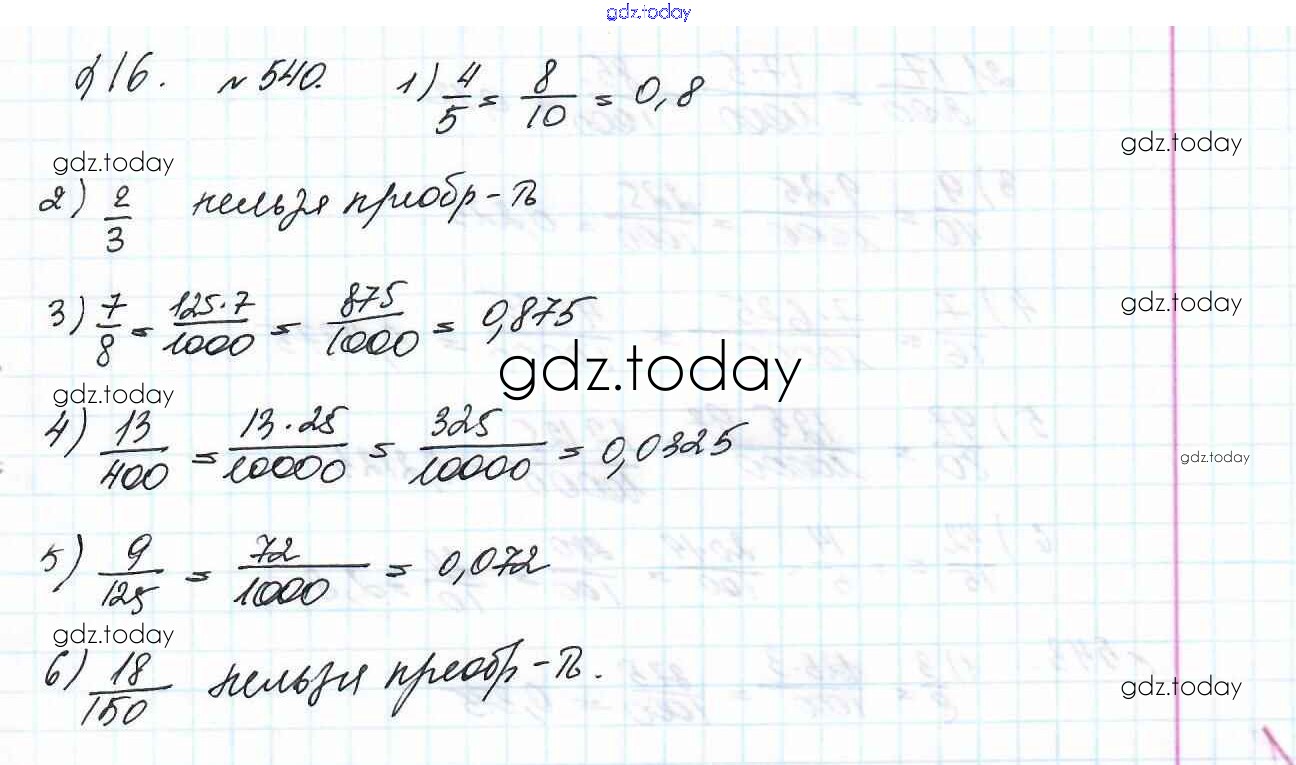 gdz.today
§16. №540. 1) 4/5 = 8/10 = 0,8
gdz.today
gdz.today
2) 2/3 нельзя преобр-ть
3) 7/8 = 125·7/1000 = 875/1000 = 0,875
gdz.today
gdz.today
gdz.today
4) 13/400 = 13·25/10000 = 325/10000 = 0,0325
gdz.today
5) 9/125 = 72/1000 = 0,072
gdz.today
6) 18/150 нельзя преобр-ть.
gdz.today